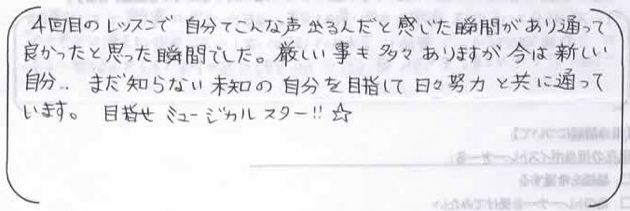 4回目のレッスンで自分てこんな声出るんだと感じた瞬間があり通って
良かったと思った瞬間でした。厳しい事も多々ありますが今は新しい
自分‥まだ知らない未知の自分を目指して日々努力と共に通って
います。 目指せミュージカルスター!!☆